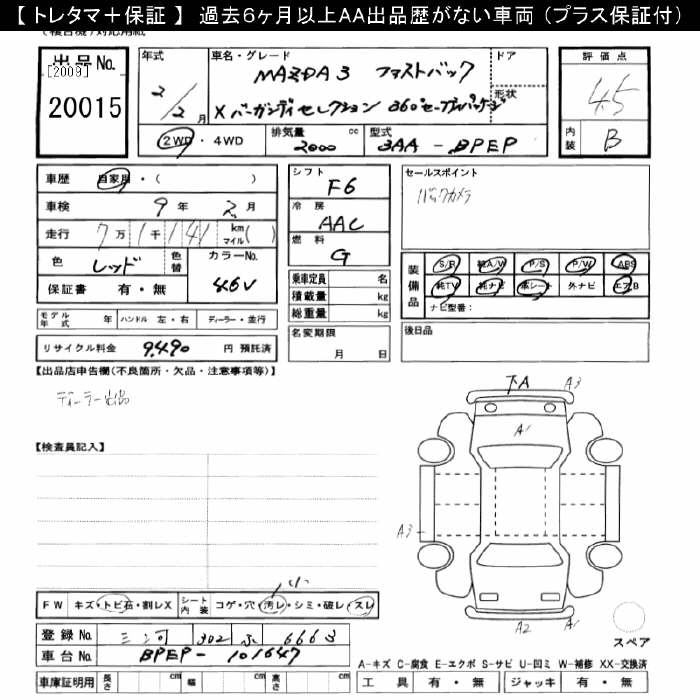 【 トレタマ＋保証 】 過去６ヶ月以上ＡＡ出品歴がない車両（プラス保証付）
出品No.
[2009]
20015
年式
2/2月
車名・グレード
MAZDA3 ファストバック
X バーガンディセレクション 360°セーフティパッケージ
ドア
形状
2WD・4WD
排気量
2000 cc
型式
3AA-BPEP
評価点
4.5
内装
B
車歴 自家用・( )
車検 9年 2月
走行 7万1千141 km マイル( )
色 レッド
色替
カラーNo.
46V
保証書 有・無
シフト
F6
冷房
AAC
燃料
G
乗車定員 名
積載量 kg
総重量 kg
セールスポイント
バックカメラ
装備品
S/R 純A/W P/S P/W ABS
純TV 純ナビ 革シート 外ナビ エアB
ナビ型番:
モデル年式 年
ハンドル 左・右
ディーラー・並行
名変期限
月 日
後日品
リサイクル料金 9,490 円 預託済
【出品店申告欄(不良箇所・欠品・注意事項等)】
ディーラー出品
下A
A3
A1
【検査員記入】
A3
FW キズ・トビ石・割レX
シート内装 コゲ・穴・汚レ・シミ・破レ・スレ
A2 A1
スペア
登録No. 三河 302 ふ 6663
車台No. BPEP-101647
A-キズ C-腐食 E-エクボ S-サビ U-凹ミ W-補修 XX-交換済
車庫証明用 長さ cm 幅 cm 高さ cm
工具 有・無 ジャッキ 有・無